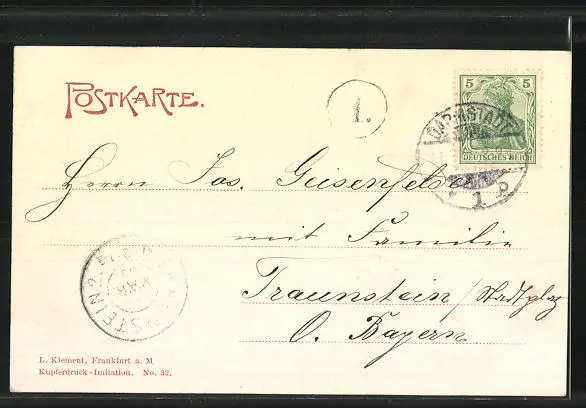 POSTKARTE.
1.
5 5
DARMSTADT
DEUTSCHES REICH
1 P
Herrn Jos. Geisenfelder
mit Familie
Traunstein / Stadtplatz
O. Bayern
TRAUNSTEIN 2
MAR
L. Klement, Frankfurt a. M.
Kupferdruck-Imitation. No. 32.